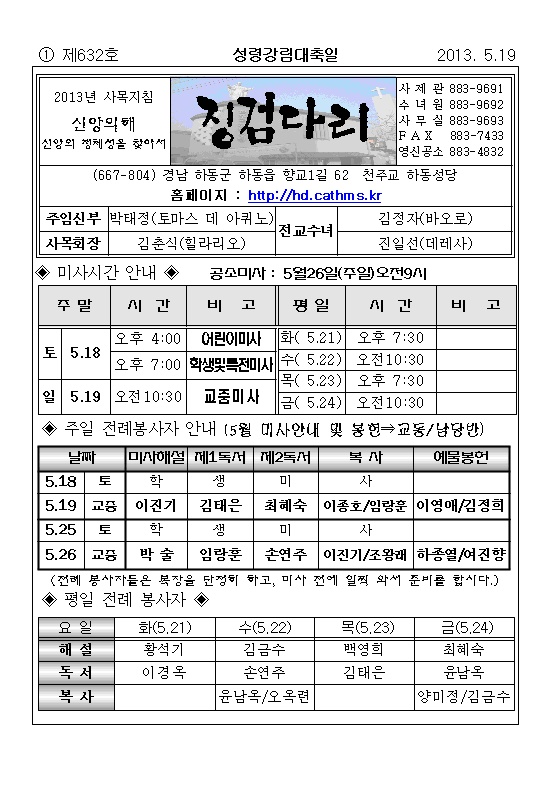 ① 제632호 성령강림대축일 2013. 5.19
2013년 사목지침
신앙의해
신앙의 정체성을 찾아서
징검다리
사 제 관 883-9691
수 녀 원 883-9692
사 무 실 883-9693
F A X 883-7433
영신공소 883-4832
(667-804) 경남 하동군 하동읍 향교1길 62 천주교 하동성당
홈페이지 : http://hd.cathms.kr
주임신부 박태정(토마스 데 아퀴노) 전교수녀 김정자(바오로)
사목회장 김춘식(힐라리오) 진일선(데레사)
◈ 미사시간 안내 ◈ 공소미사 : 5월26일(주일)오전9시
주 말 시 간 비 고 평 일 시 간 비 고
토 5.18 오후 4:00 어린이미사 화( 5.21) 오후 7:30
오후 7:00 학생및특전미사 수( 5.22) 오전10:30
목( 5.23) 오후 7:30
일 5.19 오전10:30 교중미사 금( 5.24) 오전10:30
◈ 주일 전례봉사자 안내 (5월 미사안내 및 봉헌⇒교동/남당반)
날짜 미사해설 제1독서 제2독서 복 사 예물봉헌
5.18 토 학 생 미 사
5.19 교중 이진기 김태은 최혜숙 이종호/임랑훈 이영애/김경희
5.25 토 학 생 미 사
5.26 교중 박 술 임랑훈 손연주 이진기/조왕래 하종열/여진향
(전례 봉사자들은 복장을 단정히 하고, 미사 전에 일찍 와서 준비를 합시다.)
◈ 평일 전례 봉사자 ◈
요 일 화(5.21) 수(5.22) 목(5.23) 금(5.24)
해 설 황석기 김금수 백영희 최혜숙
독 서 이경옥 손연주 김태은 윤남옥
복 사 윤남옥/오옥련 양미정/김금수